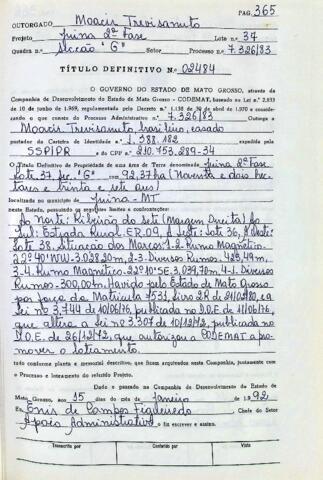 PAG. 365
OUTORGADO Moacir Trevisanuto
Projeto Juina 2ª Fase Lote n.º 37
Quadra n.º Secção "G" Setor Processo n.º 7.326/83
TÍTULO DEFINITIVO N.º 02484
O GOVERNO DO ESTADO DE MATO GROSSO, através da
Companhia de Desenvolvimento do Estado de Mato Grosso - CODEMAT, baseado na Lei n.º 2.833
de 10 de junho de 1.969, regulamentada pelo Decreto n.º 1.138 de 30 de abril de 1.970 e considerando
o que consta do Processo Administrativo n.º 7.326/83 Outorga a
Moacir Trevisanuto, brasileiro, casado
portador da Carteira de Identidade n.º 1.388.182 expedida pela
SSPIPR e do CPF n.º 210.753.289-34
o Título Definitivo de Propriedade de uma Área de Terra denominada Juina 2ª Fase
Lote 37, sec. "G" com 92,37ha (Noventa e dois hec-
tares e trinta e sete ares)
localizado no município de Juina - MT
neste Estado, possuindo os seguintes limites e confrontações:
ao Norte: Ribeirão do Sete (Margem Direita) Ao
Sul: Estrada Rural-ER.09, A Leste: Lote 36, A Oeste:
Lote 38, Situação dos Marcos: 1-2-Rumo Magnético
22º40'NW-3.028,20m, 2-3-Diversos Rumos-423,49m,
3-4-Rumo Magnético-22º10'SE-3.039,70m-4-1-Diversos
Rumos-300,00m. Havido pelo Estado de Mato Grosso
por força da Matrícula nº531, Livro 2R de 24/02/80, ca
Lei nº 3.744 de 10/06/76, publicada no D.O.E. de 11/06/76,
que altera a Lei nº 3.307 de 10/12/72, publicada no
D.O.E. de 26/12/72, que autorizou a CODEMAT a pro-
mover o loteamento.
tudo conforme planta e memorial descritivo, que ficam arquivados nesta Companhia, juntamente com
o Processo e loteamento do referido Projeto.
Dado e passado na Companhia de Desenvolvimento do Estado de
Mato Grosso, aos 15 dias do mês de Janeiro de 1.992
Eu Enis de Campos Figueiredo Chefe do Setor
Apoio Administrativo o fiz escrever e assino.
Transcrito por Conferido por Visto